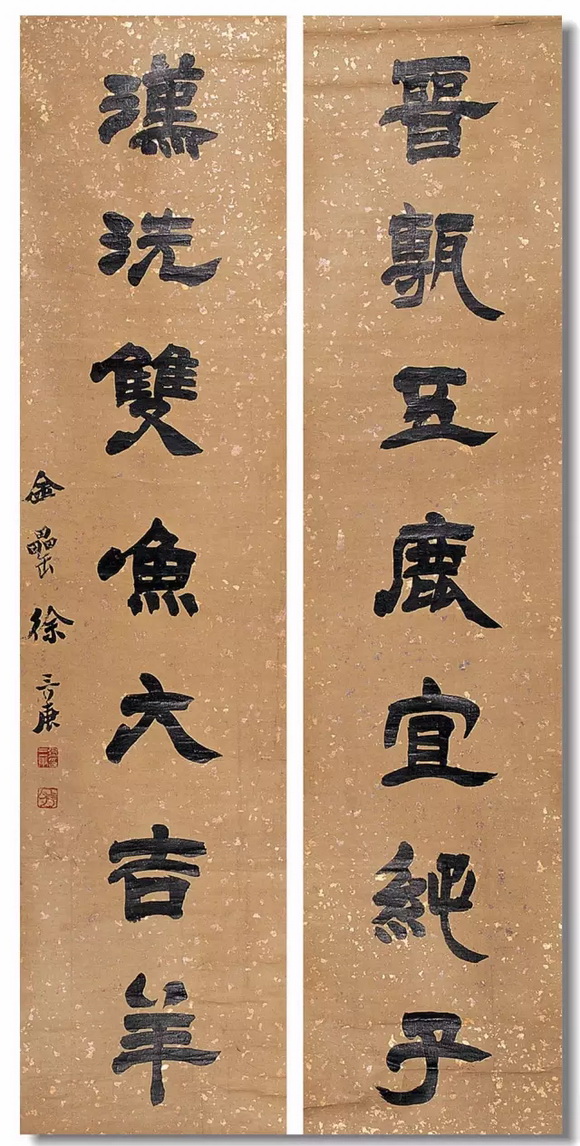 晉甎五鹿宜孫子
漢洗雙魚大吉羊
金罍徐三庚